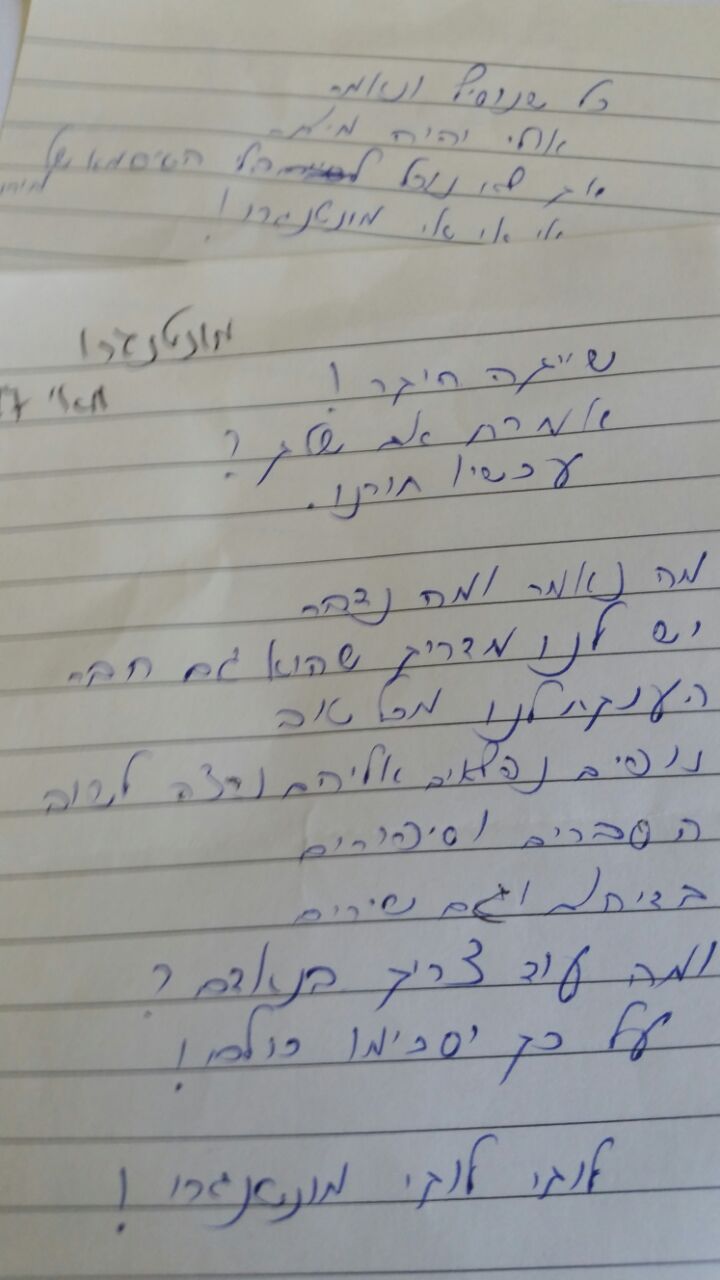 כל שנוסיף ונאמר
אולי יהיה מיותר
אך לא נוכל בלי הסיסמא של
אוי אוי אוי מונטנגרו!
מונטנגרו
מאי
שייקה היקר!
אמרת אם שלג?
עכשיו חורנו.
מה נאמר ומה נדבר
יש לנו מדריך שהוא גם חבר
הענקת לנו מכל טוב
נופים נפלאים אליהם נרצה לשוב
הסברים וסיפורים
בדיחות וגם שירים
ומה עוד צריך בנאדם?
על כך יסכימו כולם!
לוגי לוגי מונטנגרו!